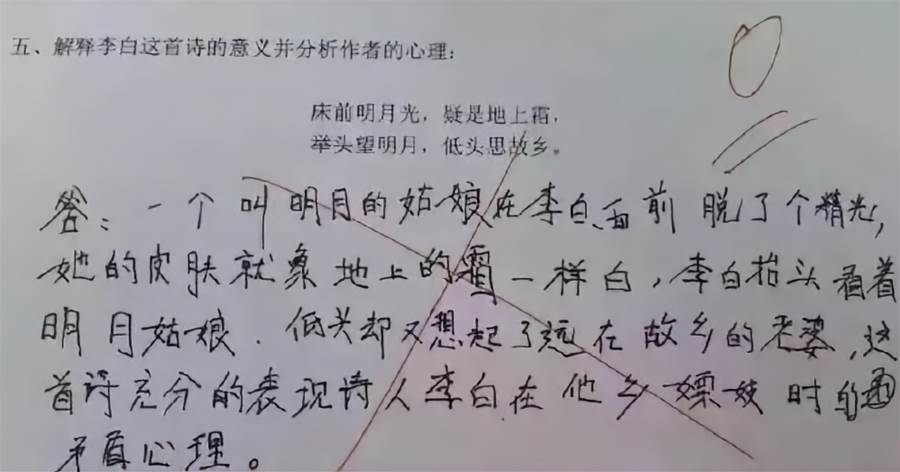 五、解释李白这首诗的意义并分析作者的心理：
床前明月光，疑是地上霜，
举头望明月，低头思故乡。
答：一个叫明月的姑娘在李白面前脱了个精光，
她的皮肤就象地上的霜一样白，李白抬头看着
明月姑娘．低头却又想起了远在故乡的老婆，这
首诗充分的表现诗人李白在他乡嫖妓时的
矛盾心理。